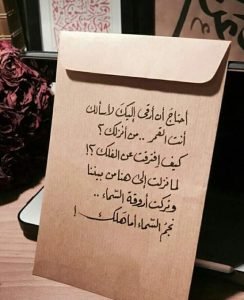 أحتاجُ أن أرقى إليكَ لأسألك
أنتَ القمر .. من أنزلك؟
كيف إفترقتَ عن الفلك؟!
لما نزلت إلى هنا من بيننا
وتركت أروقة السماء ..
نجمُ السماء أما هلك!